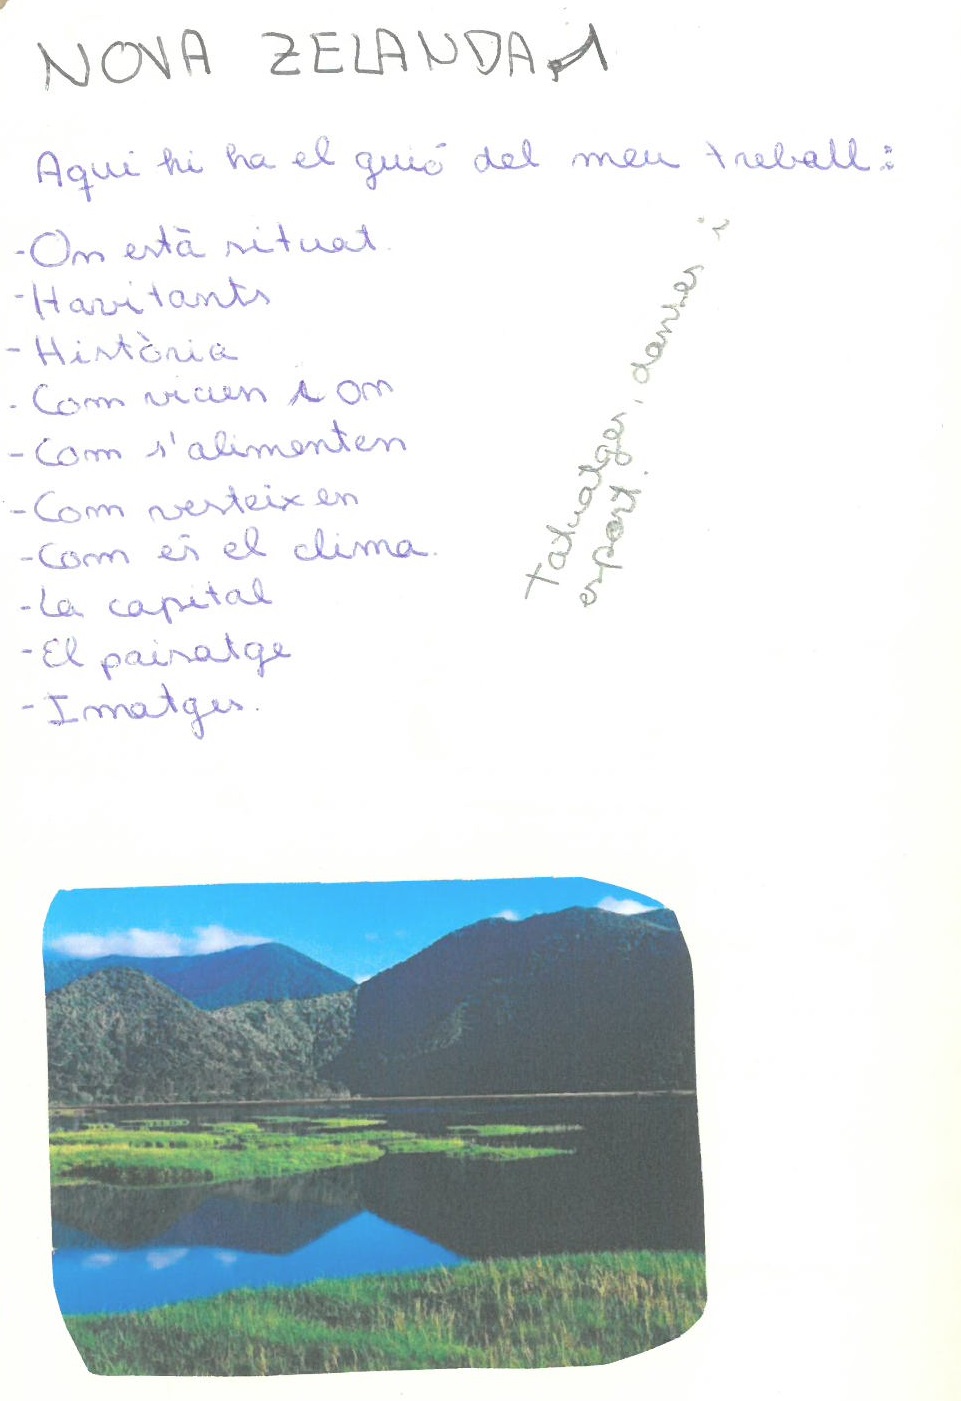 NOVA ZELANDA 1
Aqui hi ha el guió del meu treball:
-On està situat.
-Havitants
-Història
-Com viuen i on
-Com s'alimenten
-Com vesteixen
-Com és el clima.
-La capital
-El paisatge
-Imatges.
Tatuatges, danses i
esport.